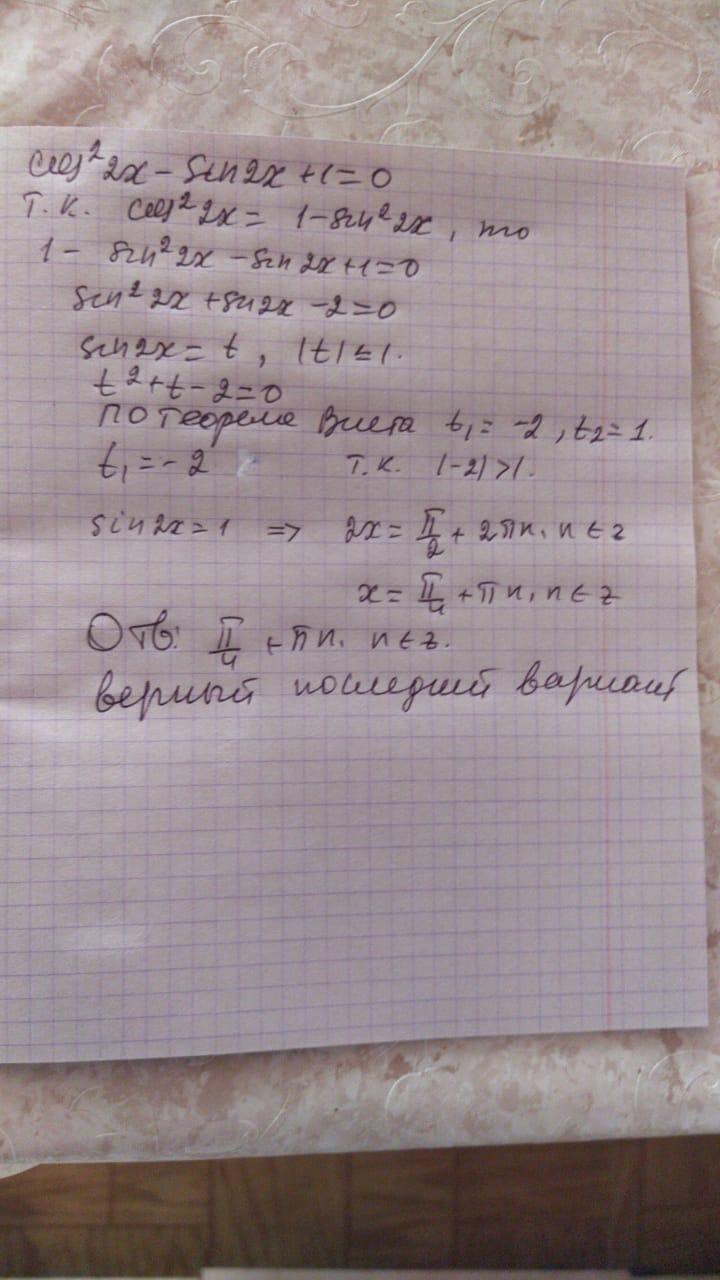 cos² 2x - sin 2x + 1 = 0
Т.к. cos² 2x = 1 - sin² 2x, то
1 - sin² 2x - sin 2x + 1 = 0
sin² 2x + sin 2x - 2 = 0
sin 2x = t, |t| ≤ 1.
t² + t - 2 = 0
По теореме Виета t₁ = -2, t₂ = 1.
t₁ = -2 т.к. |-2| > 1.
sin 2x = 1 => 2x = π/2 + 2πn, n ∈ z
x = π/4 + πn, n ∈ z
Отв: π/4 + πn, n ∈ z.
верный последний вариант